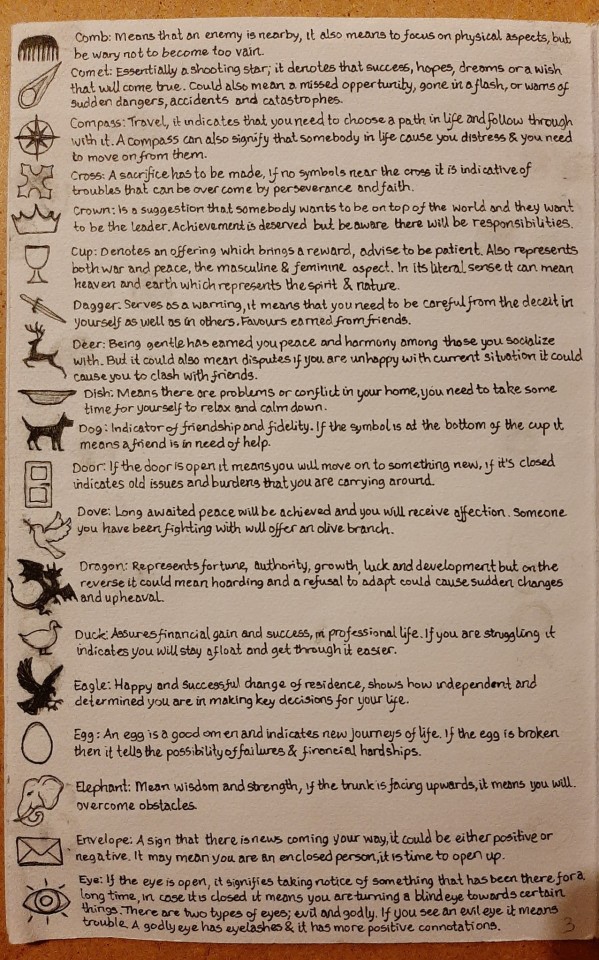 Comb: Means that an enemy is nearby, it also means to focus on physical aspects, but
be wary not to become too vain.
Comet: Essentially a shooting star; it denotes that success, hopes, dreams or a wish
that will come true. Could also mean a missed opportunity, gone in a flash, or warns of
sudden dangers, accidents and catastrophes.
Compass: Travel, it indicates that you need to choose a path in life and follow through
with it. A compass can also signify that somebody in life cause you distress & you need
to move on from them.
Cross: A sacrifice has to be made, if no symbols near the cross it is indicative of
troubles that can be over come by perseverance and faith.
Crown: Is a suggestion that somebody wants to be on top of the world and they want
to be the leader. Achievement is deserved but be aware there will be responsibilities.
Cup: Denotes an offering which brings a reward, advise to be patient. Also represents
both war and peace, the masculine & feminine aspect. In its literal sense it can mean
heaven and earth which represents the spirit & nature.
Dagger: Serves as a warning, it means that you need to be careful from the deceit in
yourself as well as in others. Favours earned from friends.
Deer: Being gentle has earned you peace and harmony among those you socialize
with. But it could also mean disputes if you are unhappy with current situation it could
cause you to clash with friends.
Dish: Means there are problems or conflict in your home, you need to take some
time for yourself to relax and calm down.
Dog: Indicator of friendship and fidelity. If the symbol is at the bottom of the cup it
means a friend is in need of help.
Door: If the door is open it means you will move on to something new, if it's closed
indicates old issues and burdens that you are carrying around.
Dove: Long awaited peace will be achieved and you will receive affection. Someone
you have been fighting with will offer an olive branch.
Dragon: Represents fortune, authority, growth, luck and development but on the
reverse it could mean hoarding and a refusal to adapt could cause sudden changes
and upheaval.
Duck: Assures financial gain and success, in professional life. If you are struggling it
indicates you will stay afloat and get through it easier.
Eagle: Happy and successful change of residence, shows how independent and
determined you are in making key decisions for your life.
Egg: An egg is a good omen and indicates new journeys of life. If the egg is broken
then it tells the possibility of failures & financial hardships.
Elephant: Mean wisdom and strength, if the trunk is facing upwards, it means you will
overcome obstacles.
Envelope: A sign that there is news coming your way, it could be either positive or
negative. It may mean you are an enclosed person, it is time to open up.
Eye: If the eye is open, it signifies taking notice of something that has been there for a
long time, in case it is closed it means you are turning a blind eye towards certain
things. There are two types of eyes; evil and godly. If you see an evil eye it means
trouble. A godly eye has eyelashes & it has more positive connotations.
3